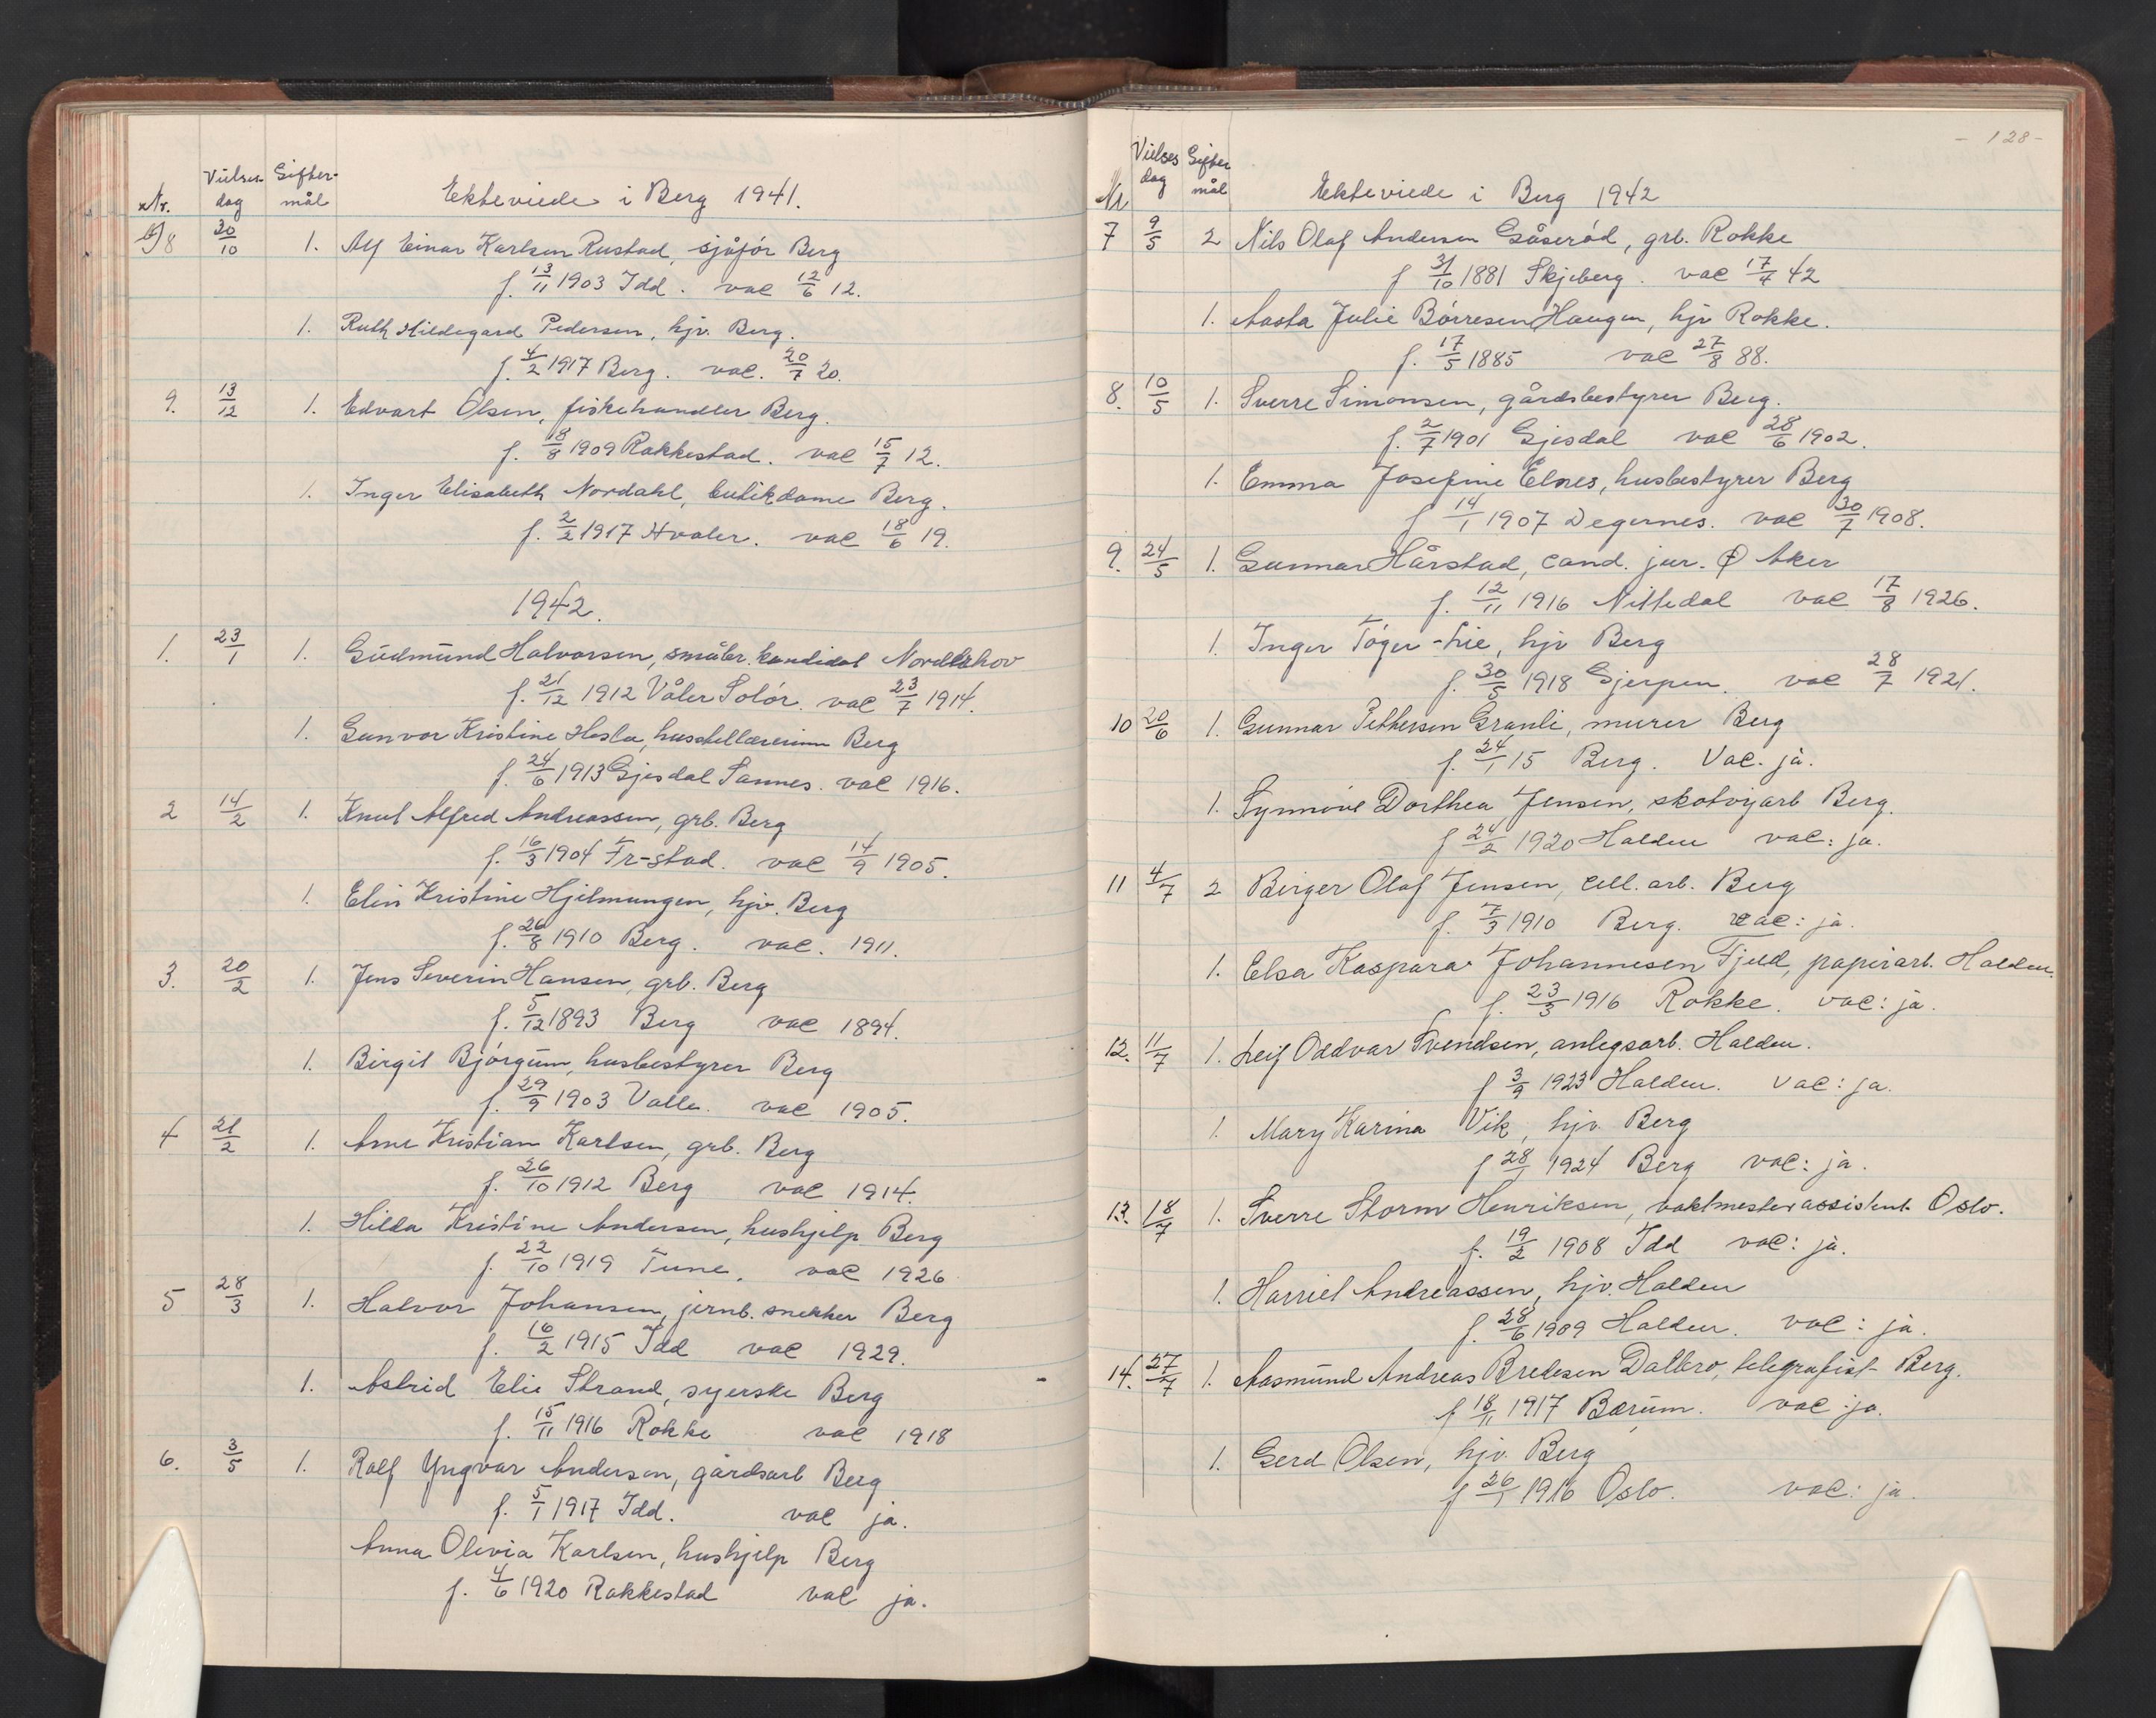 Nr. Vielses- dag Gifter- mål Ekteviede i Berg 1941.
8 30/10 1. Alf Einar Karlsen Rustad, sjåfør Berg
f. 13/11 1903 Idd. vac 12/6 12.
1. Ruth Hildegard Pedersen, hjv. Berg.
f. 4/2 1917 Berg. vac. 20/7 20.
9. 13/12 1. Edvart Olsen, fiskehandler Berg.
f. 18/8 1909 Rakkestad. vac 15/7 12.
1. Inger Elisabeth Nordahl, butikdame Berg.
f. 2/2 1917 Hvaler. vac 18/6 19.
1942.
1. 23/1 1. Gudmund Halvorsen, småbr. kandidat
f. 21/12 1912 Våler Solør. vac 23/7 1914.
1. Gunvor Kristine Hesla, husstellærerinne Berg
f. 24/6 1913 Gjesdal Sannes. vac 1916.
2 14/2 1. Knut Alfred Andreassen, grb. Berg
f. 16/3 1904 Fr-stad. vac 14/9 1905.
1. Elin Kristine Hjelmungen, hjv. Berg
f. 26/8 1910 Berg. vac. 1911.
3. 20/2 1. Jens Severin Hansen, grb. Berg
f. 5/12 1893 Berg vac 1894.
1. Birgit Bjørgum, husbestyrer Berg
f. 29/9 1903 Valle. vac 1905.
4 21/2 1. Arne Kristian Karlsen, grb. Berg
f. 26/10 1912 Berg vac 1914.
1. Hilda Kristine Andersen, hushjelp Berg
f. 22/10 1919 Tune. vac 1926
5 28/3 1. Halvor Johansen, jernb. snekker Berg
f. 16/2 1915 Idd vac 1929.
1. Astrid Elie Strand, syerske Berg
f. 15/11 1916 Rokke vac 1918
6. 3/5 1. Rolf Yngvar Andersen, gårdsarb Berg
f. 5/1 1917 Idd. vac ja.
Anna Olivia Karlsen, hushjelp Berg
f. 4/6 1920 Rakkestad vac ja.
- 128 -
Nr Vielses dag Gifter mål Ekteviede i Berg 1942
7 9/5 2 Nils Olaf Andersen Gåserød, grb. Rokke
f 31/10 1881 Skjeberg. vac 17/4 42
1. Aasta Julie Børresen Haugen, hjv Rokke.
f. 17/5 1885 vac 27/8 88.
8. 10/5 1. Sverre Simonsen, gårdsbestyrer Berg.
f. 2/7 1901 Gjesdal vac 28/6 1902.
1. Emma Josefine Elnes, husbestyrer Berg
f 14/1 1907 Degernes. vac 30/7 1908.
9. 24/5 1. Gunnar Hårstad, cand. jur. Ø Aker
f. 12/11 1916 Nittedal vac 17/8 1926.
1. Inger Tøger-Lie, hjv Berg
f. 30/5 1918 Gjerpen. vac 28/7 1921.
10 20/6 1. Gunnar Pettersen Granli, murer Berg
f. 24/1 15 Berg. Vac. ja.
1. Synnøve Dorthea Jensen, skotøyarb Berg.
f 24/2 1920 Halden vac: ja.
11 4/7 2 Birger Olaf Jensen, cell. arb. Berg
f. 7/3 1910 Berg. vac: ja.
1. Elsa Kaspara Johannesen Fjeld, papirarb. Halden.
f. 23/3 1916 Rokke. vac: ja.
12. 11/7 1. Leif Oddvar Svendsen, anlegsarb. Halden.
f 3/9 1923 Halden. vac: ja.
1. Mary Karina Vik, hjv. Berg
f 28/1 1924 Berg vac: ja.
13. 18/7 1. Sverre Storm Henriksen, vaktmesterassistent Oslo.
f. 19/2 1908 Idd vac: ja.
1. Harriet Andreassen, hjv. Halden
f. 28/6 1909 Halden. vac: ja.
14. 27/7 1. Aasmund Andreas Bredesen Dalbro, telegrafist Berg.
f 18/11 1917 Bærum. vac: ja.
1. Gerd Olsen, hjv. Berg
f 26/1 1916 Oslo. vac: ja.